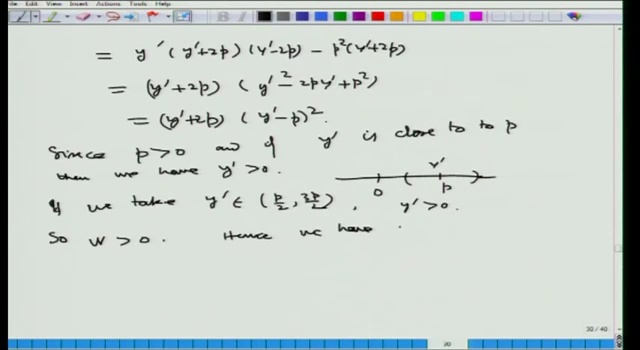 File Edit View Insert Actions Tools Help
= y' (y'+2p) (y'-2p) - p²(y'+2p)
= (y'+2p) (y'² - 2py' + p²)
= (y'+2p) (y'-p)².
Since p>0 and if y' is close to to p
then we have y'>0.
y'
0 p
If we take y' ∈ (p/2, 3p/2), y'>0.
So W > 0. Hence we have
30 / 40
30